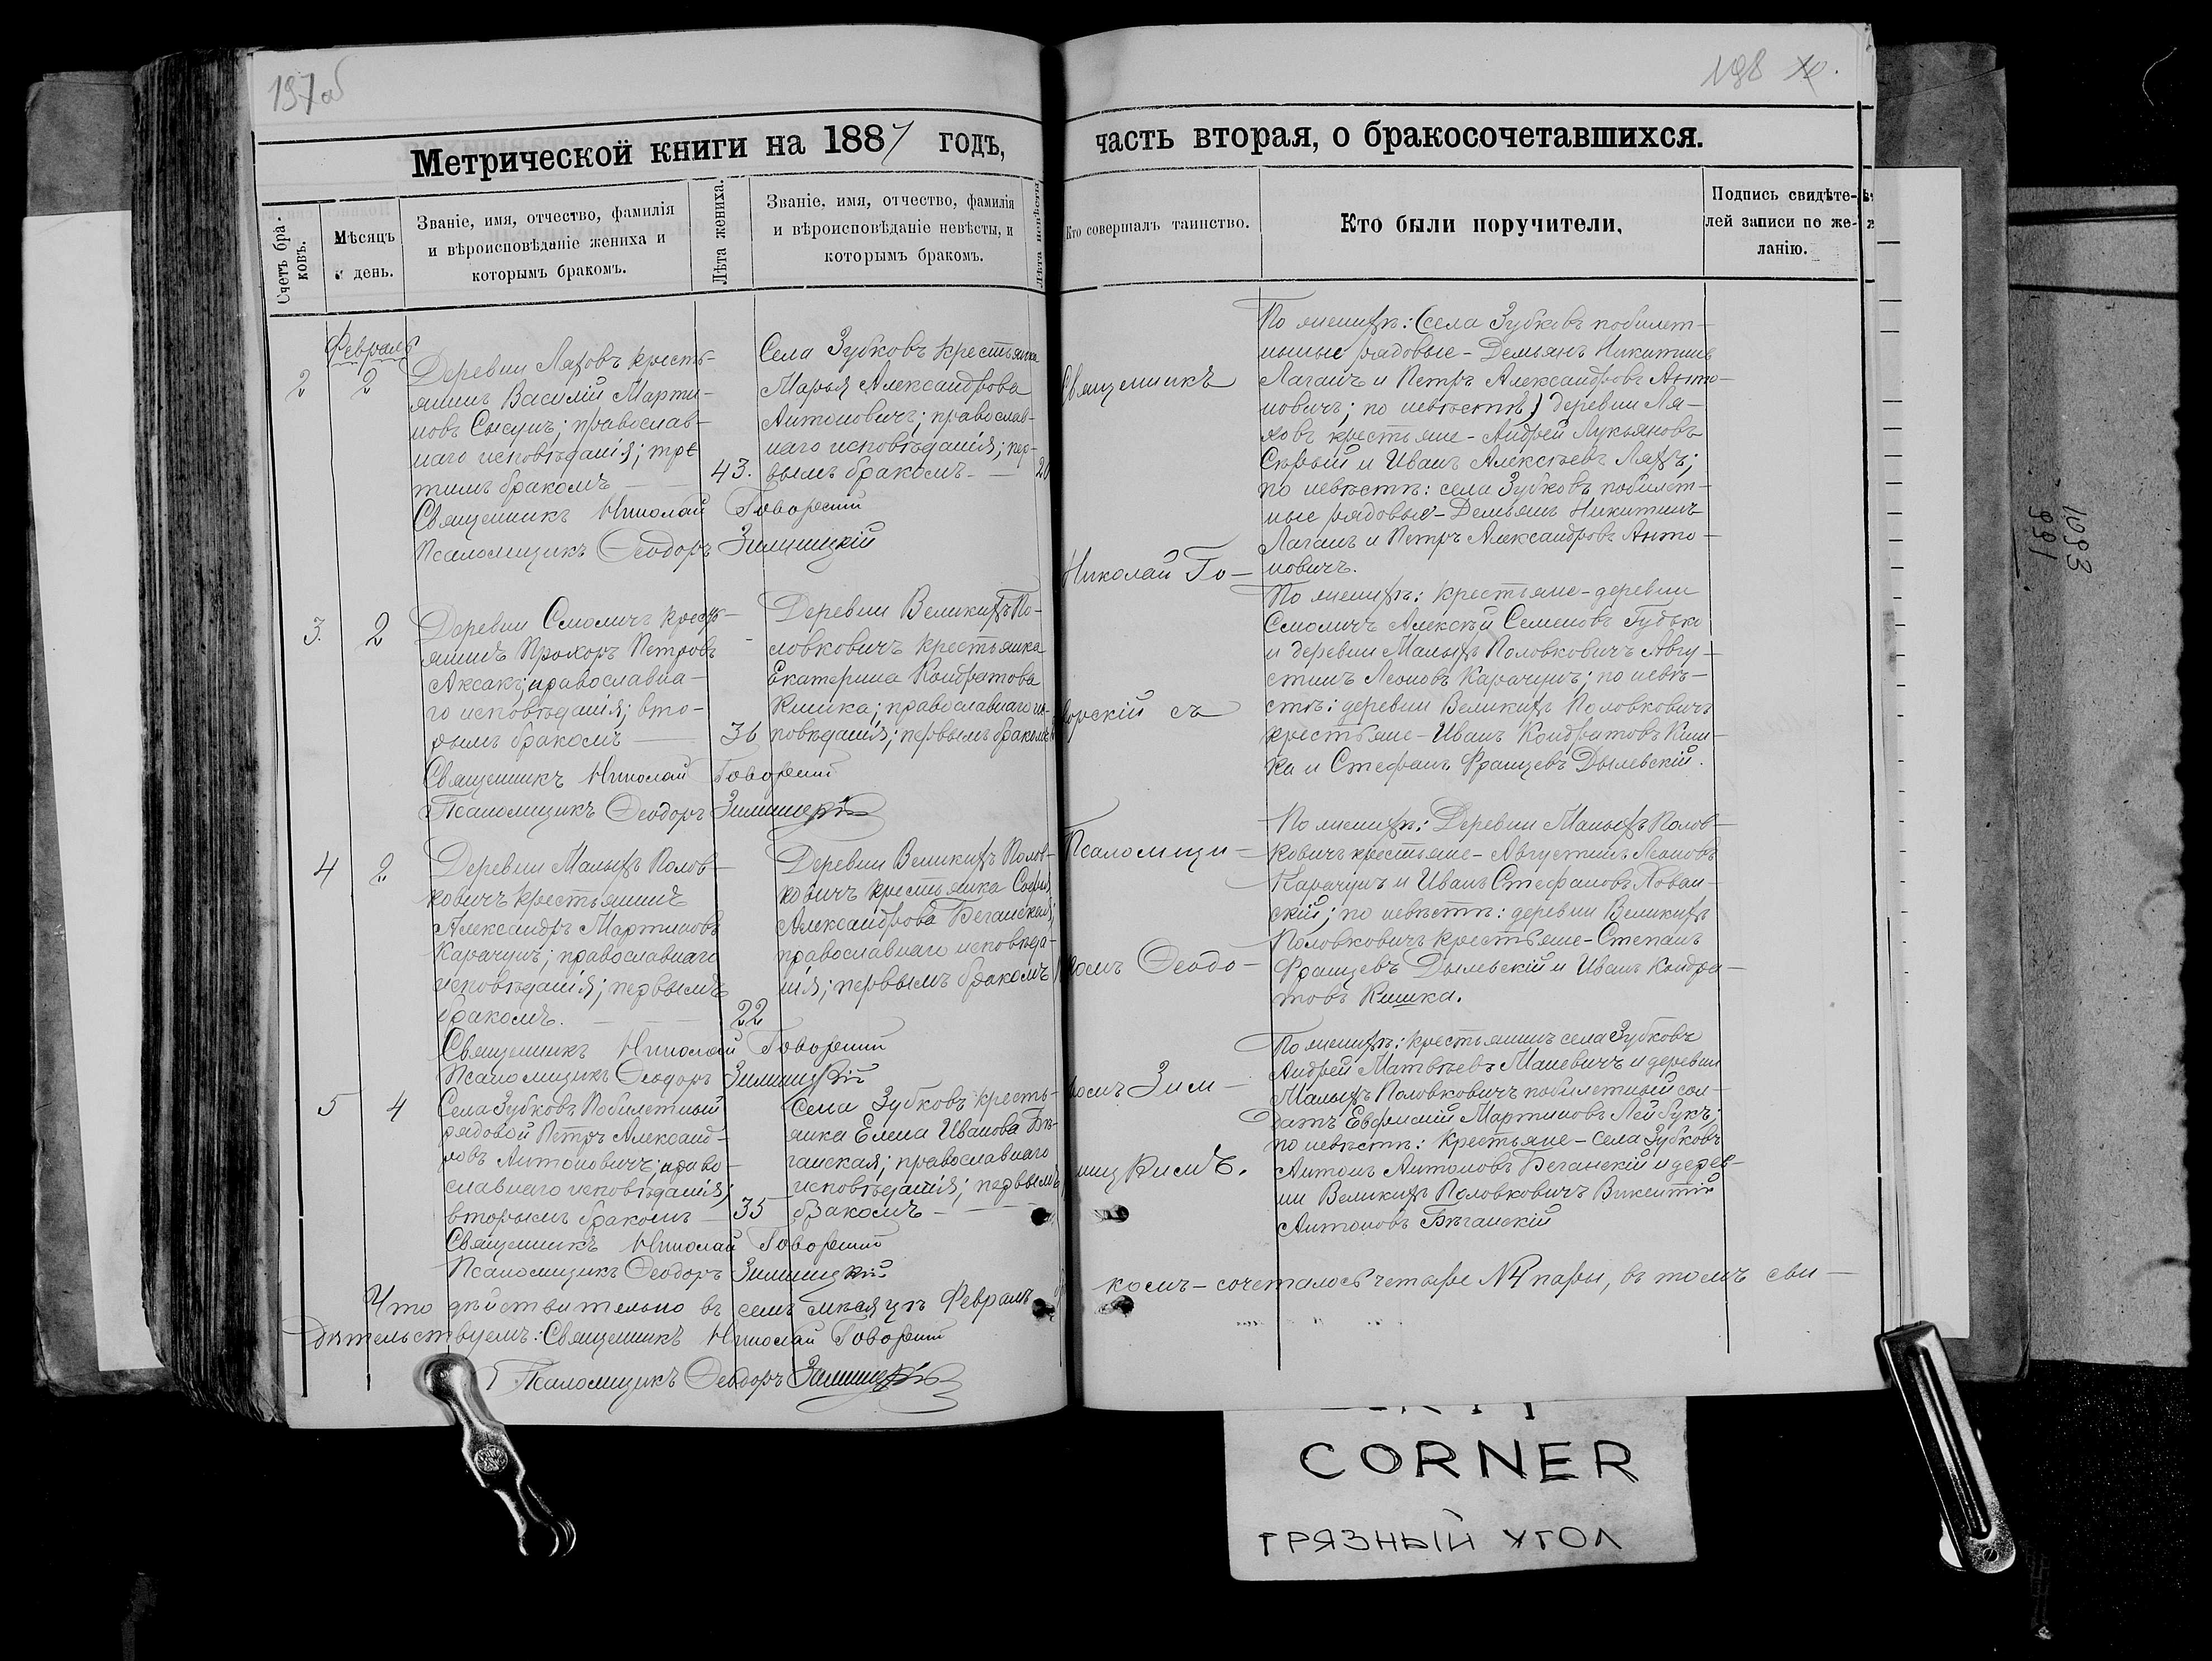 197об
198
Метрической книги на 1887 годъ,
часть вторая, о бракосочетавшихся.
Счетъ бра-
ковъ.
Мѣсяцъ
и день.
Званіе, имя, отчество, фамилія
и вѣроисповѣданіе жениха и
которымъ бракомъ.
Лѣта жениха.
Званіе, имя, отчество, фамилія
и вѣроисповѣданіе невѣсты, и
которымъ бракомъ.
Лѣта невѣсты
Кто совершалъ таинство.
Кто были поручители,
Подпись свидѣте-
лей записи по же-
ланію.
Февраль
2
2
Деревни Ляховъ кресть-
янинъ Василій Марти-
новъ Сысунъ; православ-
наго исповѣданія; тре
тимъ бракомъ
43.
Села Зубковъ крестьянка
Марья Александрова
Антоновичъ; православ-
наго исповѣданія; пер-
вымъ бракомъ
20
Священникъ Николай Говорскій
Псаломщикъ Ѳеодоръ Зимницкій
По женихѣ: (села Зубковъ побилет-
ныные рядовые - Демьянъ Никитинъ
Лаганъ и Петръ Александровъ Анто-
новичъ; по невѣстѣ) деревни Ля-
ховъ крестьяне - Андрей Лукьяновъ
Сѣрый и Иванъ Алексѣевъ Ляхъ;
по невѣстѣ: села Зубковъ побилет-
ные рядовые - Демьянъ Никитинъ
Лаганъ и Петръ Александровъ Анто-
новичъ.
3.
2
Деревни Смоличъ кресть-
янинъ Прохоръ Петровъ
Аксакъ; православна-
го исповѣданія; вто-
рымъ бракомъ
36
Деревни Великихъ По-
ловковичъ крестьянка
Екатерина Кондратова
Кишка; православнаго ис-
повѣданія; первымъ бракомъ
Священникъ Николай Говорскій
Псаломщикъ Ѳеодоръ Зимницкій
По женихѣ: крестьяне - деревни
Смоличъ Алексѣй Семеновъ Гудько
и деревни Малыхъ Половковичъ Авгу-
стинъ Леоновъ Карачунъ; по невѣ-
стѣ: деревни Великихъ Половковичъ
крестьяне - Иванъ Кондратовъ Киш-
ка и Стефанъ Францевъ Дылевскій.
4
2
Деревни Малыхъ Полов-
ковичъ крестьянинъ
Александръ Мартиновъ
Карачунъ; православнаго
исповѣданія; первымъ
бракомъ.
22
Деревни Великихъ Полов-
ковичъ крестьянка Софія
Александрова Беганская;
православнаго исповѣда-
нія; первымъ бракомъ
Священникъ Николай Говорскій
Псаломщикъ Ѳеодоръ Зимницкій
По женихѣ: Деревни Малыхъ Полов-
ковичъ крестьяне - Августинъ Леоновъ
Карачунъ и Иванъ Стефановъ Хован-
скій; по невѣстѣ: деревни Великихъ
Половковичъ крестьяне - Степанъ
Францевъ Дылевскій и Иванъ Кондра-
товъ Кишка.
5
4
Села Зубковъ Побилетный
рядовой Петръ Александ-
ровъ Антоновичъ; право-
славнаго исповѣданія;
вторымъ бракомъ
35
Села Зубковъ кресть-
янка Елена Иванова Бѣ-
ганская; православнаго
исповѣданія; первымъ
бракомъ
Священникъ Николай Говорскій
Псаломщикъ Ѳеодоръ Зимницкій
По женихѣ: крестьянинъ села Зубковъ
Андрей Матвѣевъ Маневичъ и деревни
Малыхъ Половковичъ побилетный сол-
датъ Евфимій Мартиновъ Лейбукъ;
по невѣстѣ: крестьяне - села Зубковъ
Антонъ Антоновъ Беганскій и дерев-
ни Великихъ Половковичъ Викентій
Антоновъ Бѣганскій
Священникъ
Николай Го-
ворскій съ
Псаломщи-
комъ Ѳеодо-
ромъ Зим-
ницкимъ.
Что дѣйствительно въ семъ мѣсяцѣ Февралѣ
комъ - сочеталось четыре №4 пары, въ томъ сви-
дѣтельствуемъ: Священникъ Николай Говорскій
Псаломщикъ Ѳеодоръ Зимницкій
1093
991
CORNER
ГРЯЗНЫЙ УГОЛ